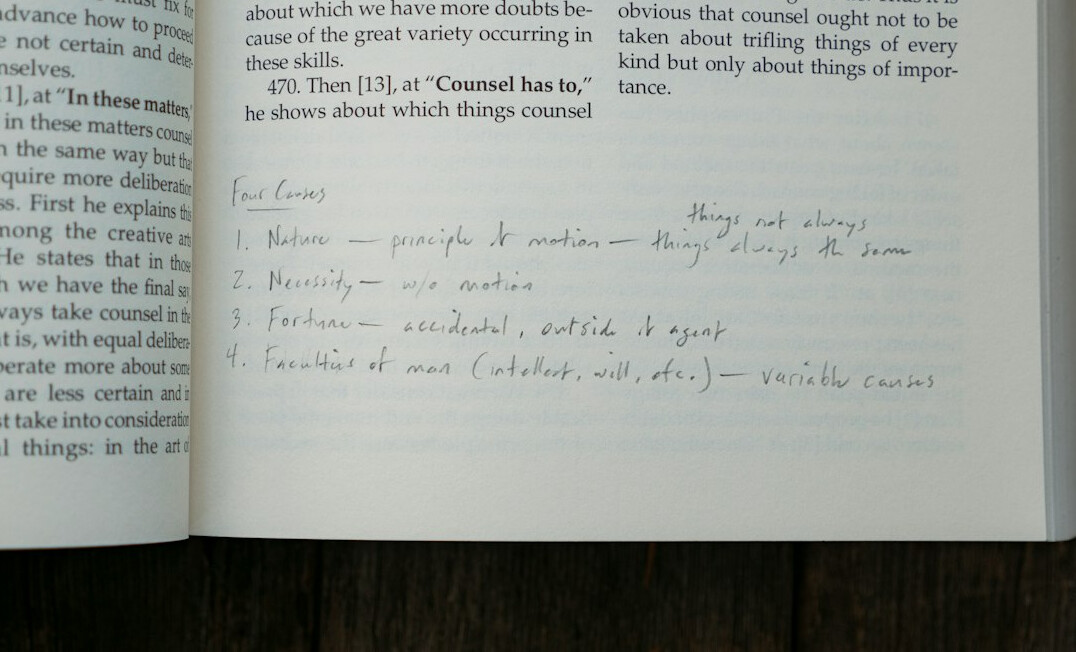 ust fix for
advance how to proceed
e not certain and deter-
nselves.
1], at “In these matters,”
in these matters counsel
n the same way but tha
quire more deliberation
ss. First he explains this
nong the creative arts
He states that in those
h we have the final say,
ways take counsel in the
t is, with equal delibera-
erate more about some
are less certain and in
t take into consideration
l things: in the art of
about which we have more doubts be-
cause of the great variety occurring in
these skills.
470. Then [13], at “Counsel has to,”
he shows about which things counsel
obvious that counsel ought not to be
taken about trifling things of every
kind but only about things of impor-
tance.
Four Causes
things not always
1. Nature — principle of motion — things always the same
2. Necessity — w/o motion
3. Fortune — accidental, outside of agent
4. Faculties of man (intellect, will, etc.) — variable causes